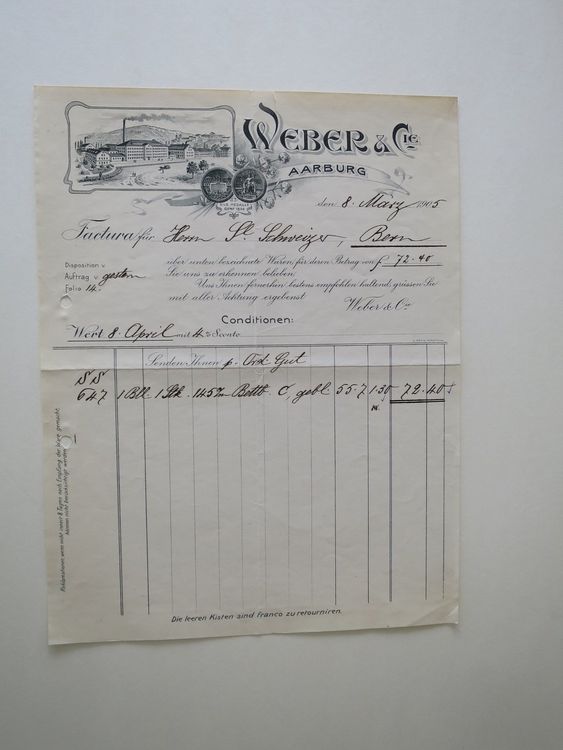 WEBER & CIE
AARBURG
den 8. März 1905
Factura für Herrn St. Schweizer, Bern
Disposition v.
Auftrag v. gestern
Folio 14.
über unten bezeichnete Waren, für deren Betrag von f. 72.40
Sie uns zu erkennen belieben.
Uns Ihnen fernerhin bestens empfohlen haltend, grüssen Sie
mit aller Achtung ergebenst
Weber & Cie
Conditionen:
Wert 8. April mit 4 % Sconto
Senden Ihnen p. Ord. Gut
SS
647 1 Bll. 1 Stk. 145 Bettb. C, gebl. 55.7 1.30 72.40
Reklamationen, wenn nicht innert 8 Tagen nach Empfang der Ware gemacht
können nicht berücksichtigt werden
Die leeren Kisten sind franco zu retournieren.